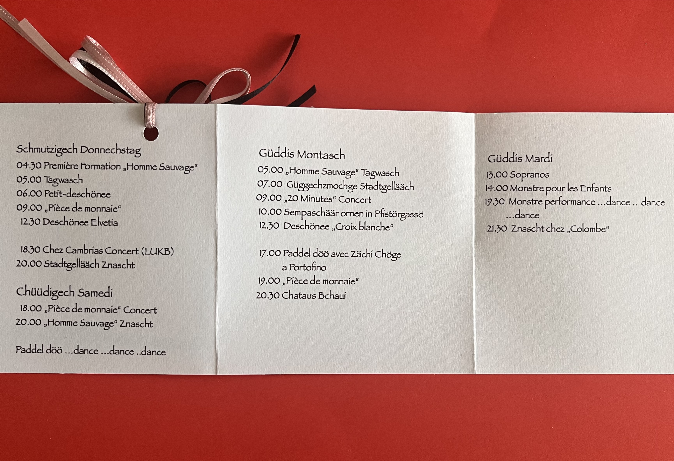 Schmutzigech Donnechstag
04.30 Première Formation „Homme Sauvage"
05.00 Tagwasch
06.00 Petit-deschönee
09.00 „Pièce de monnaie"
12.30 Deschönee Elvetia
18.30 Chez Cambrias Concert (LUKB)
20.00 Stadtgellääch Znascht
Chüüdigech Samedi
18.00 „Pièce de monnaie" Concert
20.00 „Homme Sauvage" Znascht
Paddel döö ...dance ...dance ..dance
Güddis Montasch
05.00 „Homme Sauvage" Tagwasch
07.00 Güggechzmochge Stadtgellääch
09.00 „20 Minutes" Concert
10.00 Sempaschäär ornen in Pfistörgasse
12.30 Deschönee „Croix blanche"
17.00 Paddel döö avec Zächi Chöge
a Portofino
19.00 „Pièce de monnaie"
20.30 Chataus Bchaui
Güddis Mardi
13.00 Sopranos
14.00 Monstre pour les Enfants
19.30 Monstre performance ...dance ...dance
...dance
21.30 Znascht chez „Colombe"